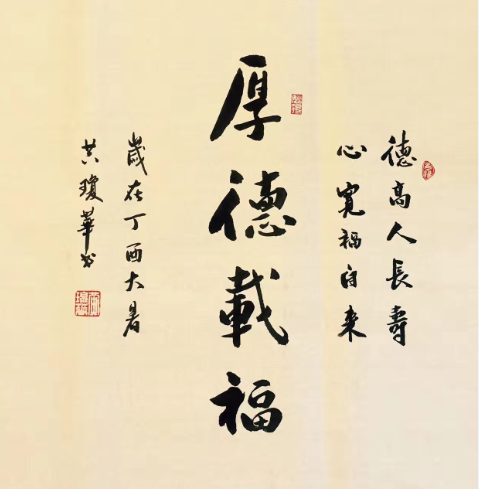 德高人長壽
心寬福自来
厚德載福
歲在丁酉大暑
瓊華书